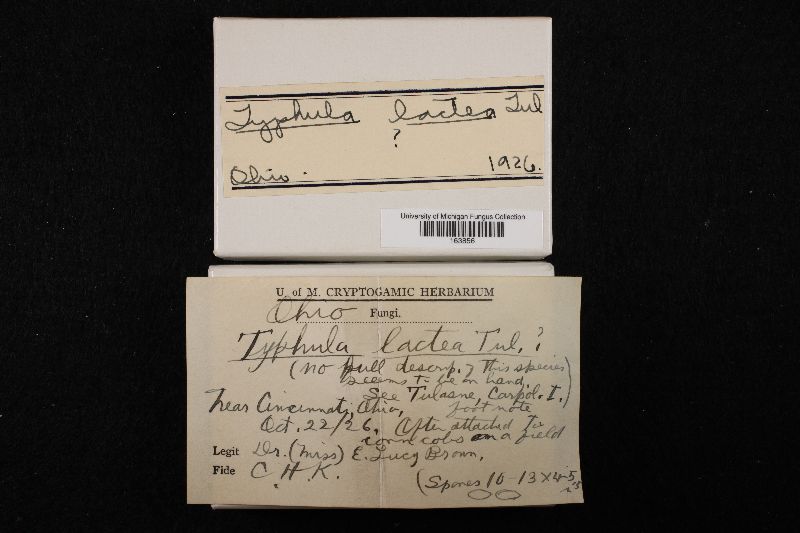 Typhula lactea Tul
?
Ohio. 1926.
University of Michigan Fungus Collection
163856
U. of M. CRYPTOGAMIC HERBARIUM
Ohio Fungi.
Typhula lactea Tul. ?
(no full descrip. of this species
seems to be on hand.
See Tulasne, Carpol. I.)
Near Cincinnati, Ohio, foot note
Oct. 22/26. After attached to
corn cobs on a field
Legit Dr. (Miss) E. Lucy Brown.
Fide C. H. K.
(Spores 10-13 x 4-5